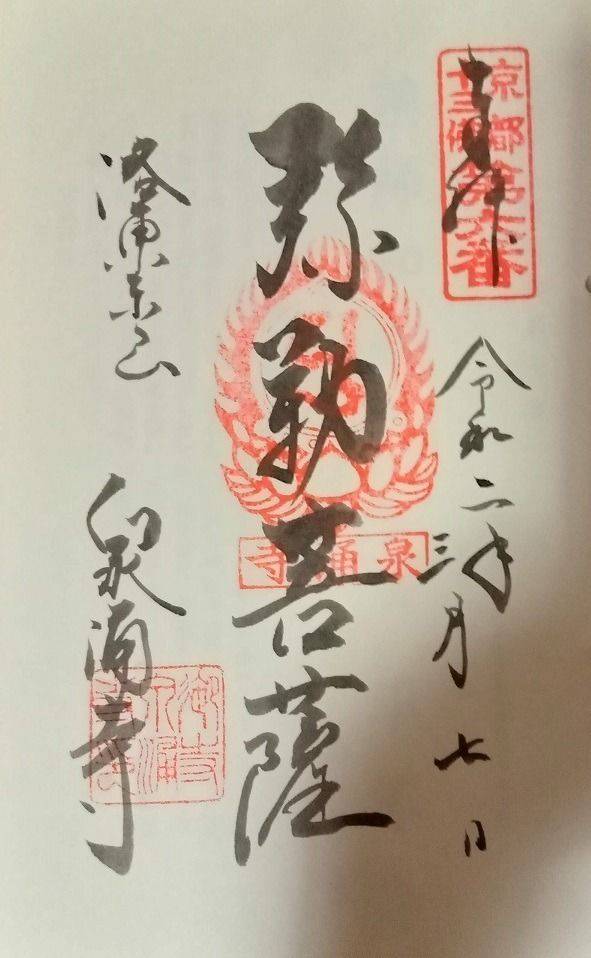 京都
十三佛
第六番
奉拝
令和二年
三月七日
弥勒菩薩
泉涌寺
洛東山
泉涌寺